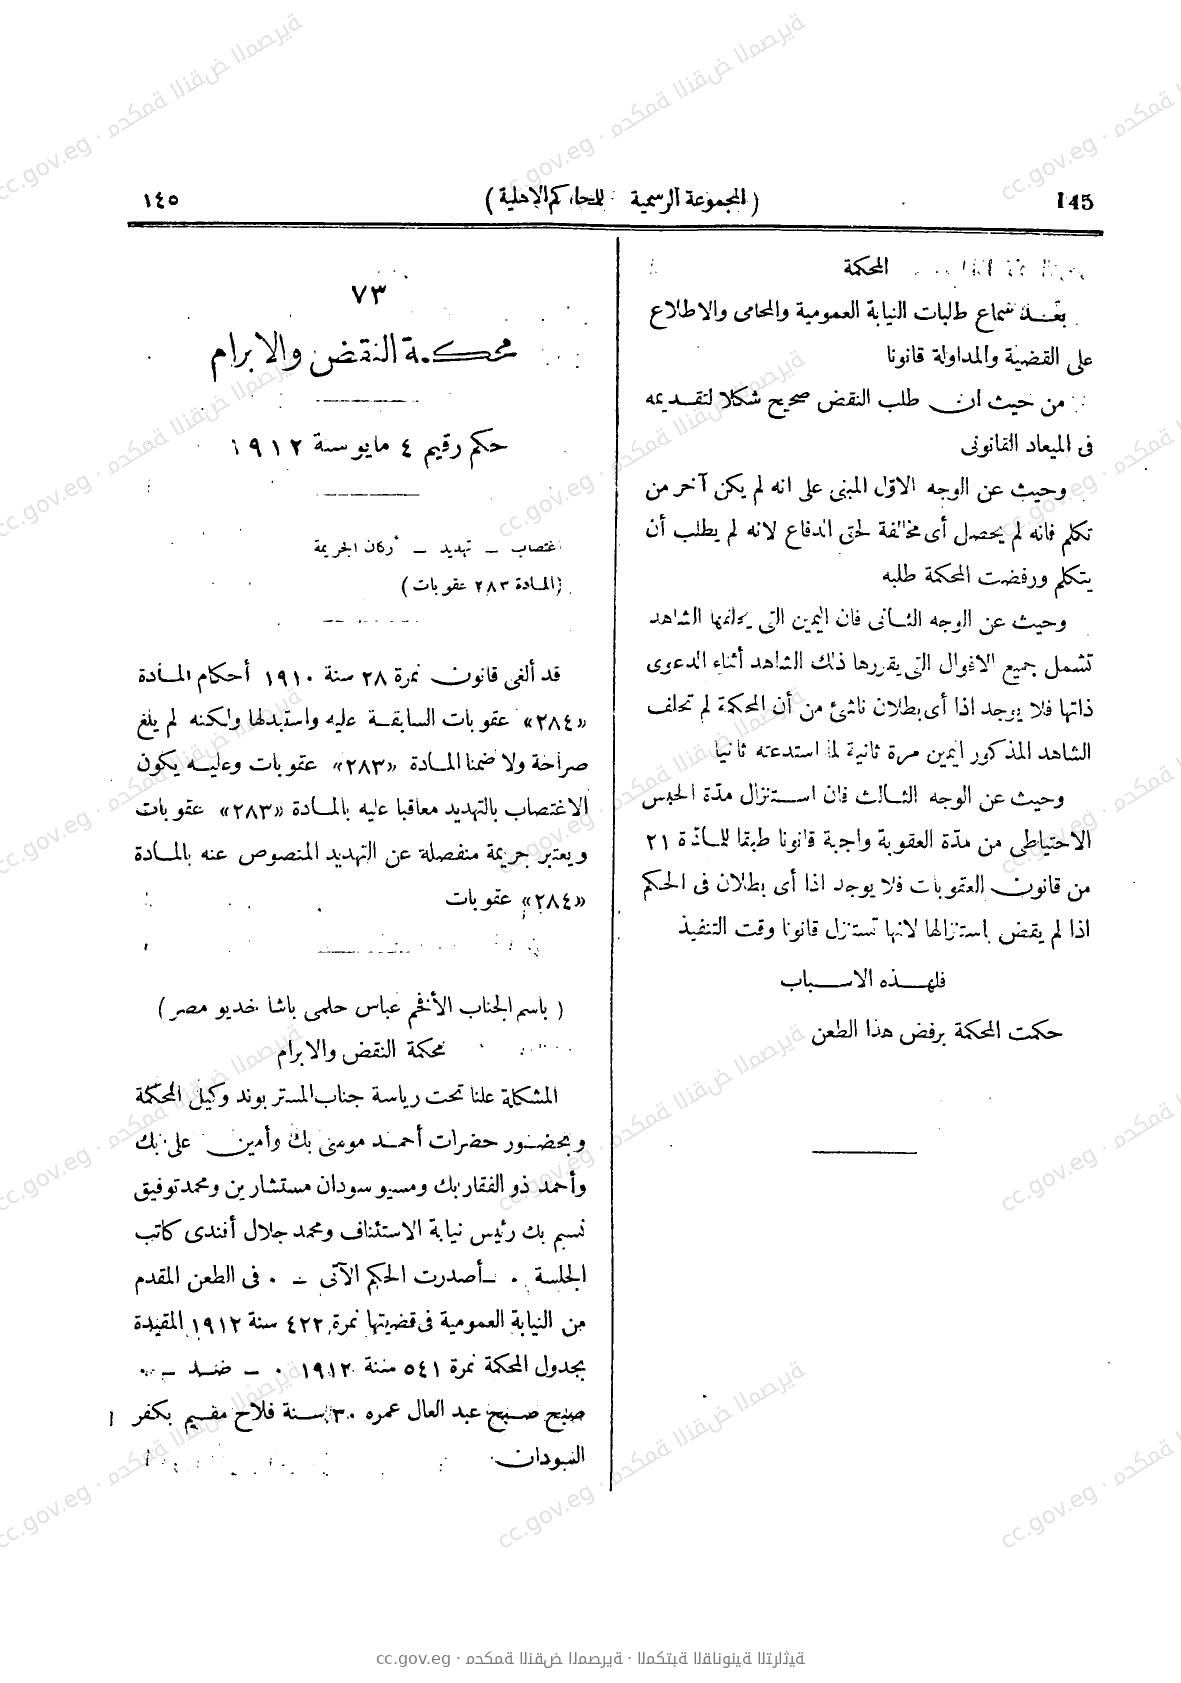 145 (المجموعة الرسمية للمحاكم الاهلية) ١٤٥
المحكمة
بعد سماع طلبات النيابة العمومية والمحامى والاطلاع
على القضية والمداولة قانونا
من حيث ان طلب النقض صحيح شكلا لتقديمه
فى الميعاد القانونى
وحيث عن الوجه الاوّل المبنى على انه لم يكن آخر من
تكلم فانه لم يحصل أى مخالفة لحق الدفاع لانه لم يطلب أن
يتكلم ورفضت المحكمة طلبه
وحيث عن الوجه الثانى فان اليمين التى يحلفها الشاهد
تشمل جميع الاقوال التى يقررها ذلك الشاهد أثناء الدعوى
ذاتها فلا يوجد اذا أى بطلان ناشئ من أن المحكمة لم تحلف
الشاهد المذكور اليمين مرة ثانية لما استدعته ثانيا
وحيث عن الوجه الثالث فان استنزال مدّة الحبس
الاحتياطى من مدّة العقوبة واجبة قانونا طبقا للمادّة ٢١
من قانون العقوبات فلا يوجد اذا أى بطلان فى الحكم
اذا لم يقض باستنزالها لانها تستنزل قانونا وقت التنفيذ
فلهذه الاسباب
حكمت المحكمة برفض هذا الطعن
٧٣
محكمة النقض والابرام
حكم رقيم ٤ مايو سنة ١٩١٢
اغتصاب – تهديد – أركان الجريمة
(المادة ٢٨٣ عقوبات)
قد ألغى قانون نمرة ٢٨ سنة ١٩١٠ أحكام المادة
«٢٨٤» عقوبات السابقة عليه واستبدلها ولكنه لم يلغ
صراحة ولا ضمنا المادة «٢٨٣» عقوبات وعليه يكون
الاغتصاب بالتهديد معاقبا عليه بالمادة «٢٨٣» عقوبات
ويعتبر جريمة منفصلة عن التهديد المنصوص عنه بالمادة
«٢٨٤» عقوبات
(باسم الجناب الأفخم عباس حلمى باشا خديو مصر)
محكمة النقض والابرام
المشكلة علنا تحت رياسة جناب المستر بوند وكيل المحكمة
وبحضور حضرات أحمد موسى بك وأمين على بك
وأحمد ذو الفقار بك ومسيو سودان مستشارين ومحمد توفيق
نسيم بك رئيس نيابة الاستئناف ومحمد جلال أفندى كاتب
الجلسة . – أصدرت الحكم الآتى – . فى الطعن المقدم
من النيابة العمومية فى قضيتها نمرة ٤٢٢ سنة ١٩١٢ المقيدة
بجدول المحكمة نمرة ٥٤١ سنة ١٩١٢ . – ضد – .
صبح صبح عبد العال عمره ٣٠ سنة فلاح مقيم بكفر
السودان
cc.gov.eg · محكمة النقض المصرية · المكتبة القانونية التراثية